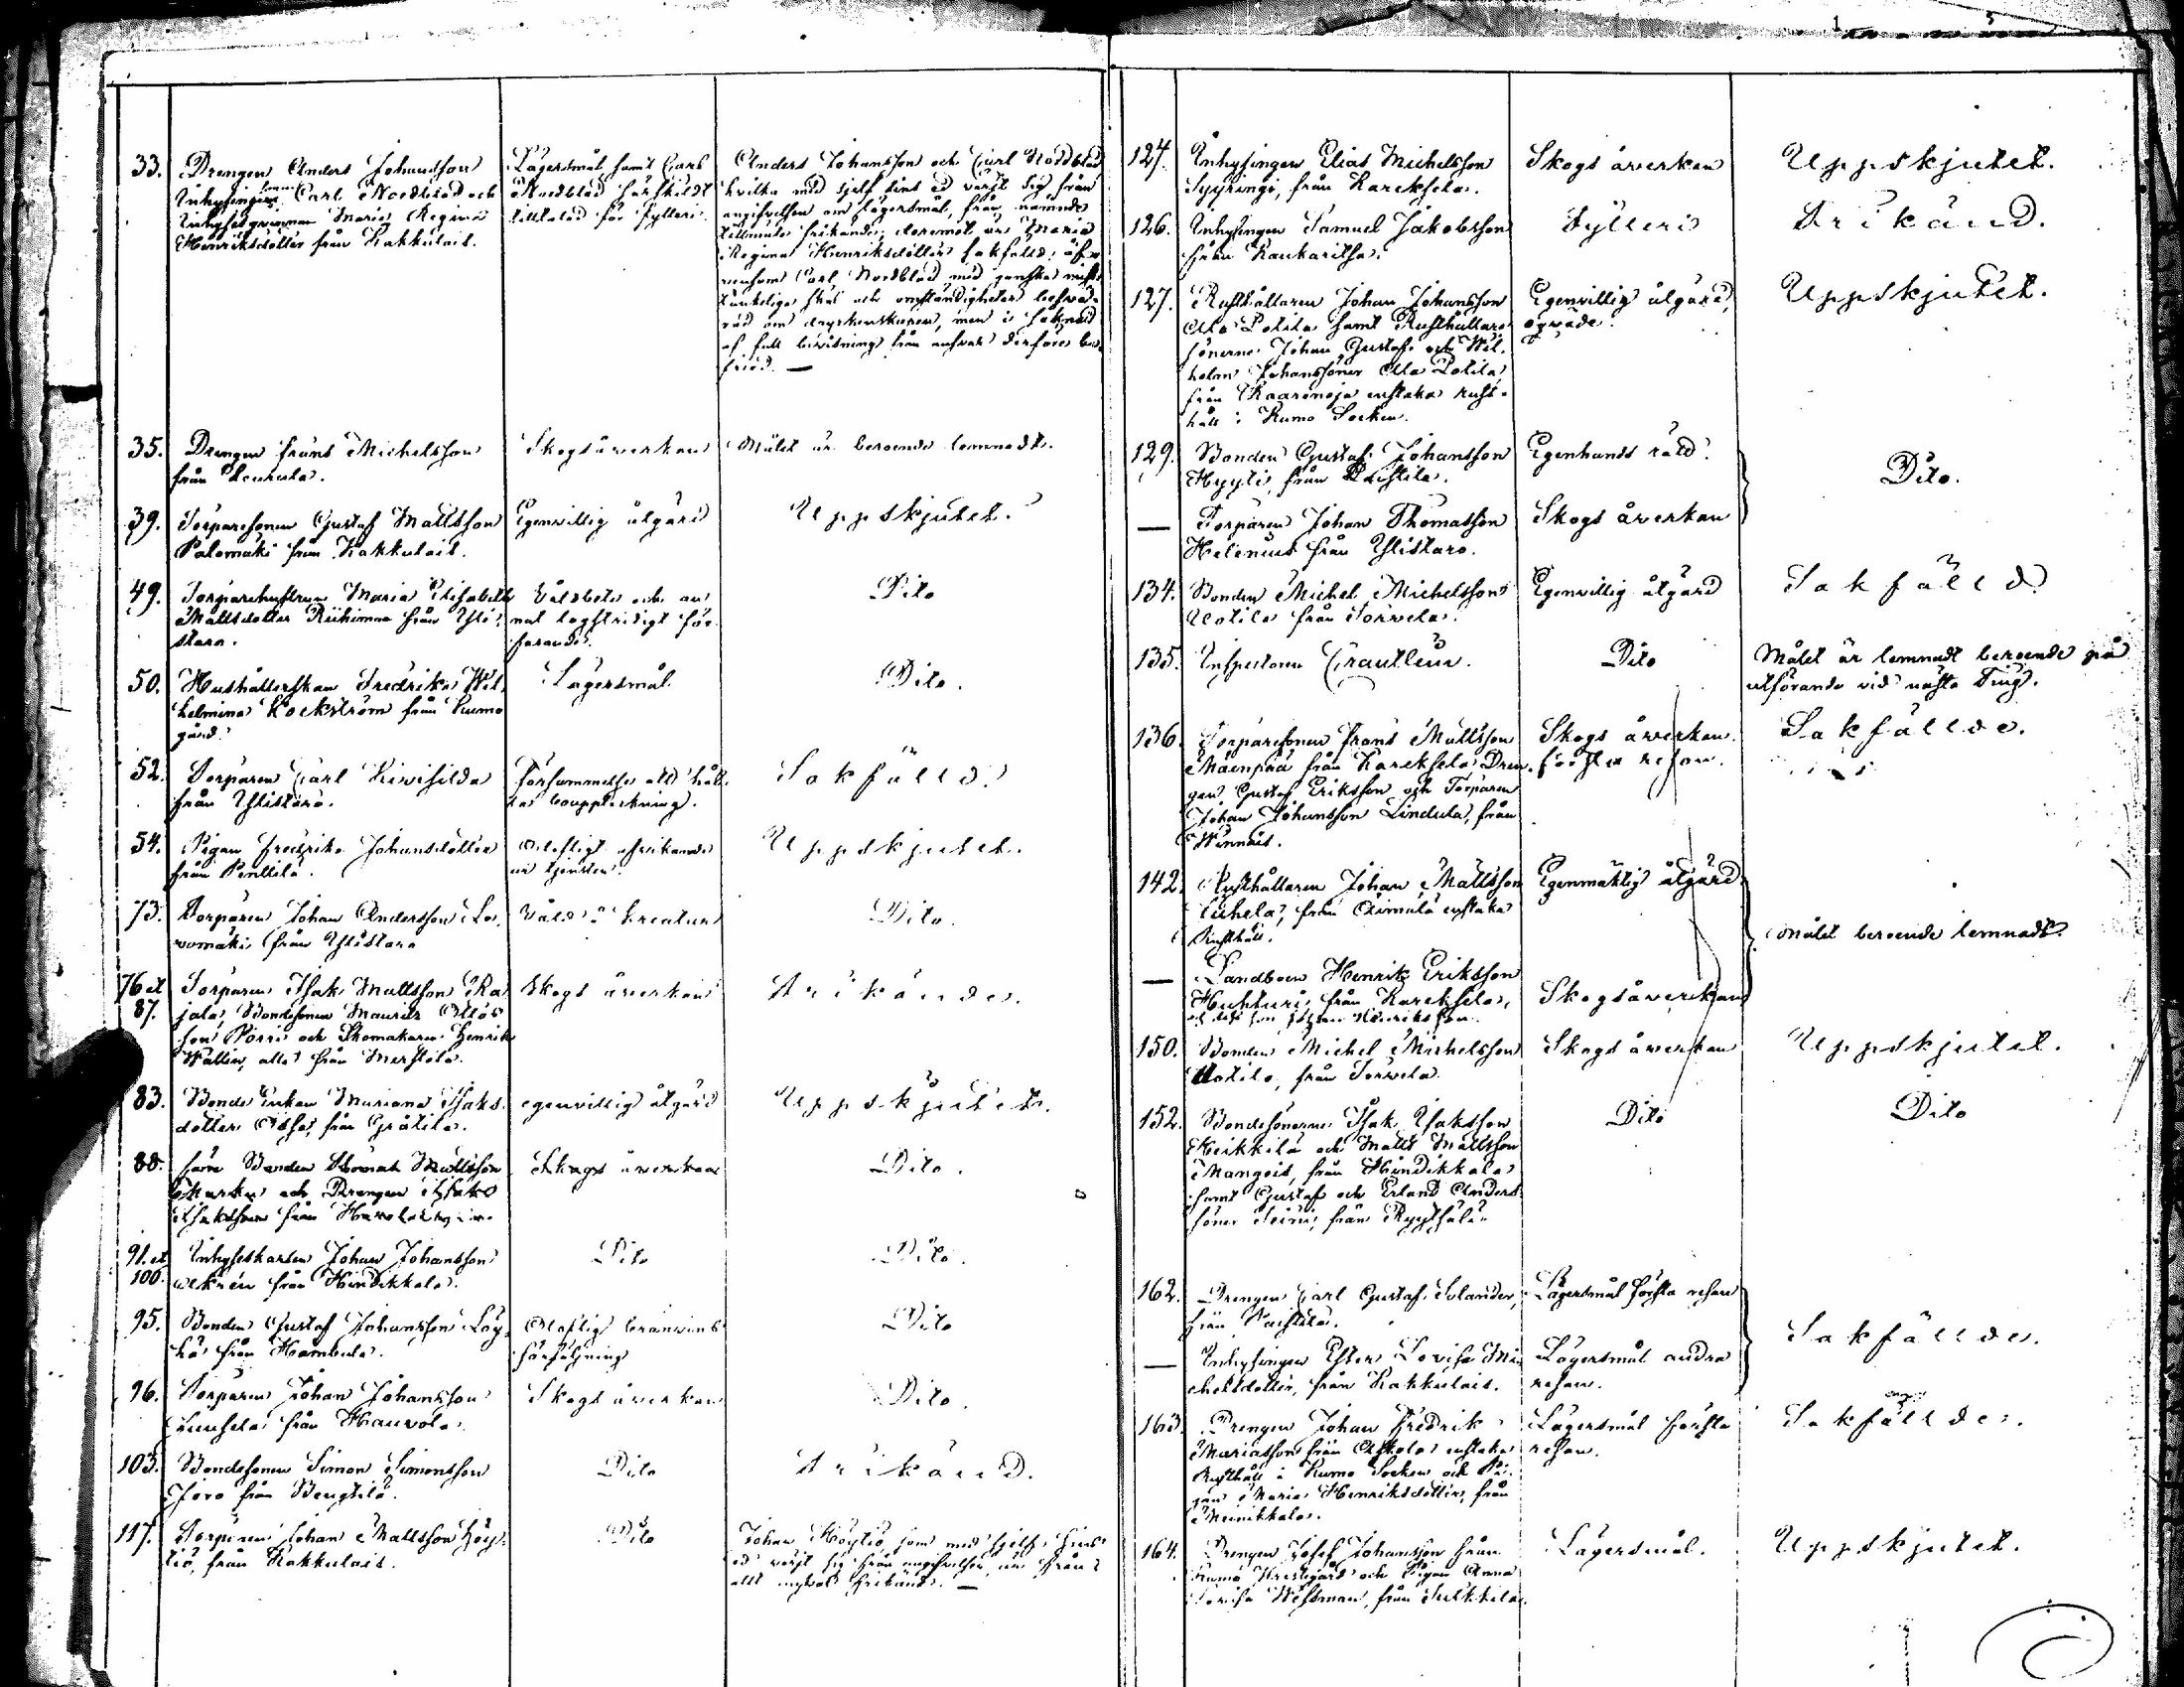 33.
Drengen Anders Johansson
Inhysingen Carl Nordblad och
Inhysesqvinnan Maria Regina
Henriksdotter från Kakkulais.
Lägersmål samt Carl
Nordblad särskildt
tilltalad för fylleri.
Anders Johansson och Carl Nordblad
hvilka med sjelf sins ed värjt sig från
angifvelsen om lägersmål, från nämnde
tillmäle frikände; deremot är Maria
Regina Henriksdotter sakfälld; äf-
vensom Carl Nordblad med ganska miss-
tänkeliga skäl och omständigheter besvä-
rad om dryckenskapen, men i saknad
af full bevisning från ansvar derföre be-
friad. —
35.
Drengen Frans Michelsson
från
Skogsåverkan
Målet är beroende lemnadt.
39.
Torparesonen Gustaf Mattsson
Palomäki från Kakkulais.
Egenvillig åtgärd
Uppskjutet.
49.
Torparehustrun Maria Elisabeth
Mattsdotter Riihimaa från Yli-
staro.
Våldsbete och an-
nat lagstridigt för-
farande.
Dito
50.
Hushållerskan Fredrika Wil-
helmina Kockström från Kumo
gård.
Lägersmål
Dito.
52.
Torparen Carl Kivisilda
från Ylistaro.
Försummelse att hål-
la bouppteckning.
Sakfälld.
54.
Pigan Fredrika Johansdotter
från Penttilä.
Olofligt afvikande
ur tjensten.
Uppskjutet.
73.
Torparen Johan Andersson Lo-
vomäki från Ylistaro
Våld å kreatur
Dito.
76 et
87.
Torparen Isak Mattsson Ra-
jala, Bondesonen Maurits
son Porri och Skomakaren Henrik
Wallin, alla från Merstola.
Skogs åverkan
Frikände.
83.
Bonde Enkan Mariana Isaks-
dotter från Gråtila.
egenvillig åtgärd
Uppskjutet.
88.
förra Bonden Thomas Mattsson
och Drengen Isak
Isaksson från
Skogs åverkan
Dito.
91. et
100.
Inhyseskarlen Johan Johansson
Ekrén från Hindikkala.
Dito
Dito.
95.
Bonden Gustaf Johansson Löy-
hä från Hambula.
Oloflig bränvins
försäljning
Dito
96.
Torparen Johan Johansson
från Hauvola.
Skogs åverkan
Dito.
103.
Bondesonen Simon Simonsson
från Bengtilä.
Dito
Frikänd.
117.
Torparen Johan Mattsson Höy-
tiö, från Kakkulais.
Dito
Johan Höytiö, som med sjelf sins
ed värjt sig från angifvelsen, är från
allt answar frikänd. —
124.
Inhysingen Elias Michelsson
Syyringi, från Kareksela.
Skogs åverkan
Uppskjutet.
126.
Inhysingen Samuel Jakobsson
från Kaukaritsa.
Fylleri
Frikänd.
127.
Rusthållaren Johan Johansson
Alla Potila samt Rusthållare
sönerne Johan, Gustaf och Wil-
helm Johanssöner Alla Potila
från Kaarenoja enstaka rust-
håll i Kumo Socken.
Egenvillig åtgärd,
oqväde.
Uppskjutet.
129.
Bonden Gustaf Johansson
Hyyti, från Paistila.
Egenhands rätt.
Dito.
—
Torparen Johan Thomasson
Helenius från Ylistaro.
Skogs åverkan
134.
Bonden Michel Michelsson
Uotila från Torvela.
Egenvillig åtgärd
Sakfälld
135.
Inspectoren Grautlein.
Dito
Målet är lemnadt beroende på
utförande vid nästa Ting.
136.
Torparesonen Frans Mattsson
Mäenpää från Kareksela, Dren-
gen Gustaf Eriksson och Torparen
Johan Johansson Lindula, från
Wännäis.
Skogs åverkan
första resan.
Sakfällde.
142.
Rusthållaren Johan Mattsson
från enstaka
Rusthåll.
Egenmäktig åtgärd
Målet beroende lemnadt.
—
Landboen Henrik Eriksson
Huhturi, från Kareksela,
och dess son Johan Henriksson.
Skogsåverkan
150.
Bonden Michel Michelsson
Uotila, från Torvela.
Skogs åverkan
Uppskjutet.
152.
Bondesönerne Isak Isaksson
Heikkilä och Matts Mattsson
Mangois, från Hindikkala
samt Gustaf och Erland Anders
söner från Ryytsälä.
Dito
Dito
162.
Drengen Carl Gustaf Solander,
från Paistila.
Lägersmål första resan
Sakfällde.
—
Inhysingen Ester Lovisa Mi-
chelsdotter, från Kakkulais.
Lägersmål andra
resan.
163.
Drengen Johan Fredrik
Mariasson från enstaka
Rusthåll i Kumo Socken och Pi-
gan Maria Henriksdotter, från
Meinikkala.
Lägersmål första
resan.
Sakfällde.
164.
Drengen Josef Johansson från
Kumo och Pigan Anna
Lovisa Westman, från Sulkkila.
Lägersmål.
Uppskjutet.